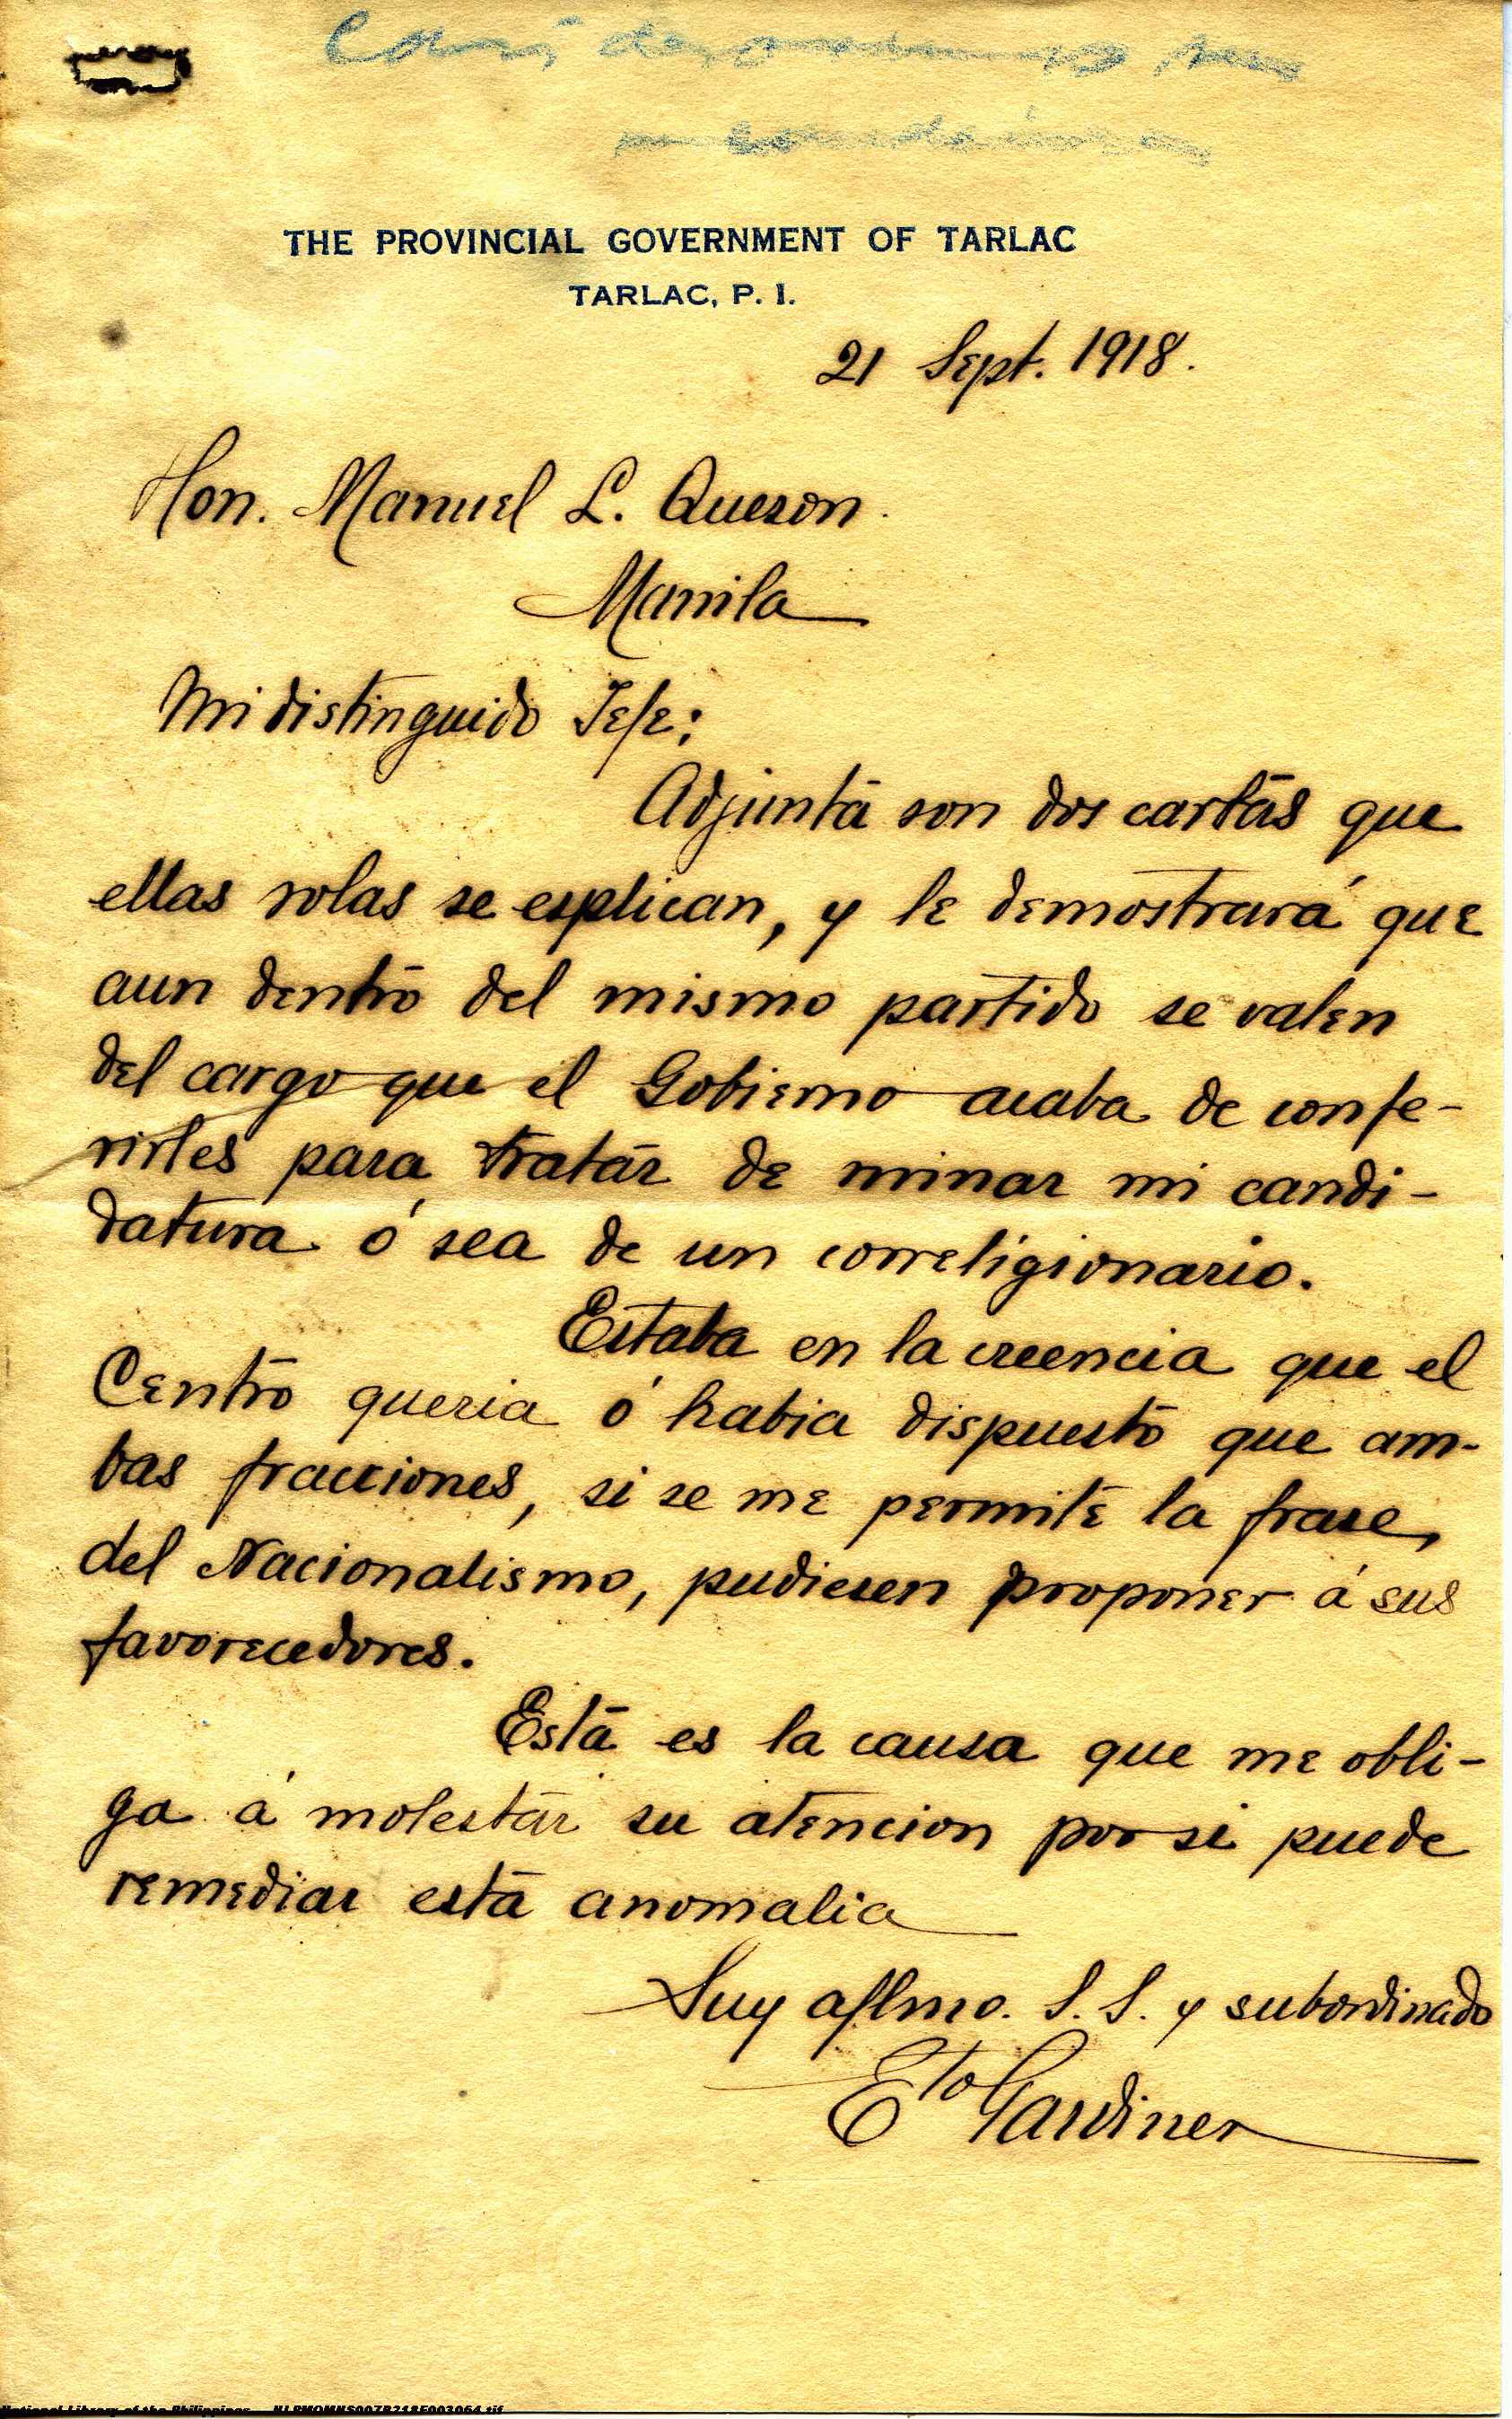 THE PROVINCIAL GOVERNMENT OF TARLAC
TARLAC, P. I.
21 Sept. 1918.
Hon. Manuel L. Quezon
Manila
Mi distinguido Jefe:
Adjunta son dos cartas que
ellas solas se esplican, y le demostrará que
aun dentro del mismo partido se valen
del cargo que el Gobierno acaba de confe-
rirles para tratar de minar mi candi-
datura ó sea de un correligionario.
Estaba en la creencia que el
Centro queria ó habia dispuesto que am-
bas fracciones, si se me permite la frase,
del Nacionalismo, pudiesen proponer á sus
favorecedores.
Esta es la causa que me obli-
ga á molestar su atencion por si puede
remediar esta anomalia
Suy affmo. S. S. y subordinado
Eto Gardiner
National Library of the Philippines NLPMQMNS007B218F003064.tif